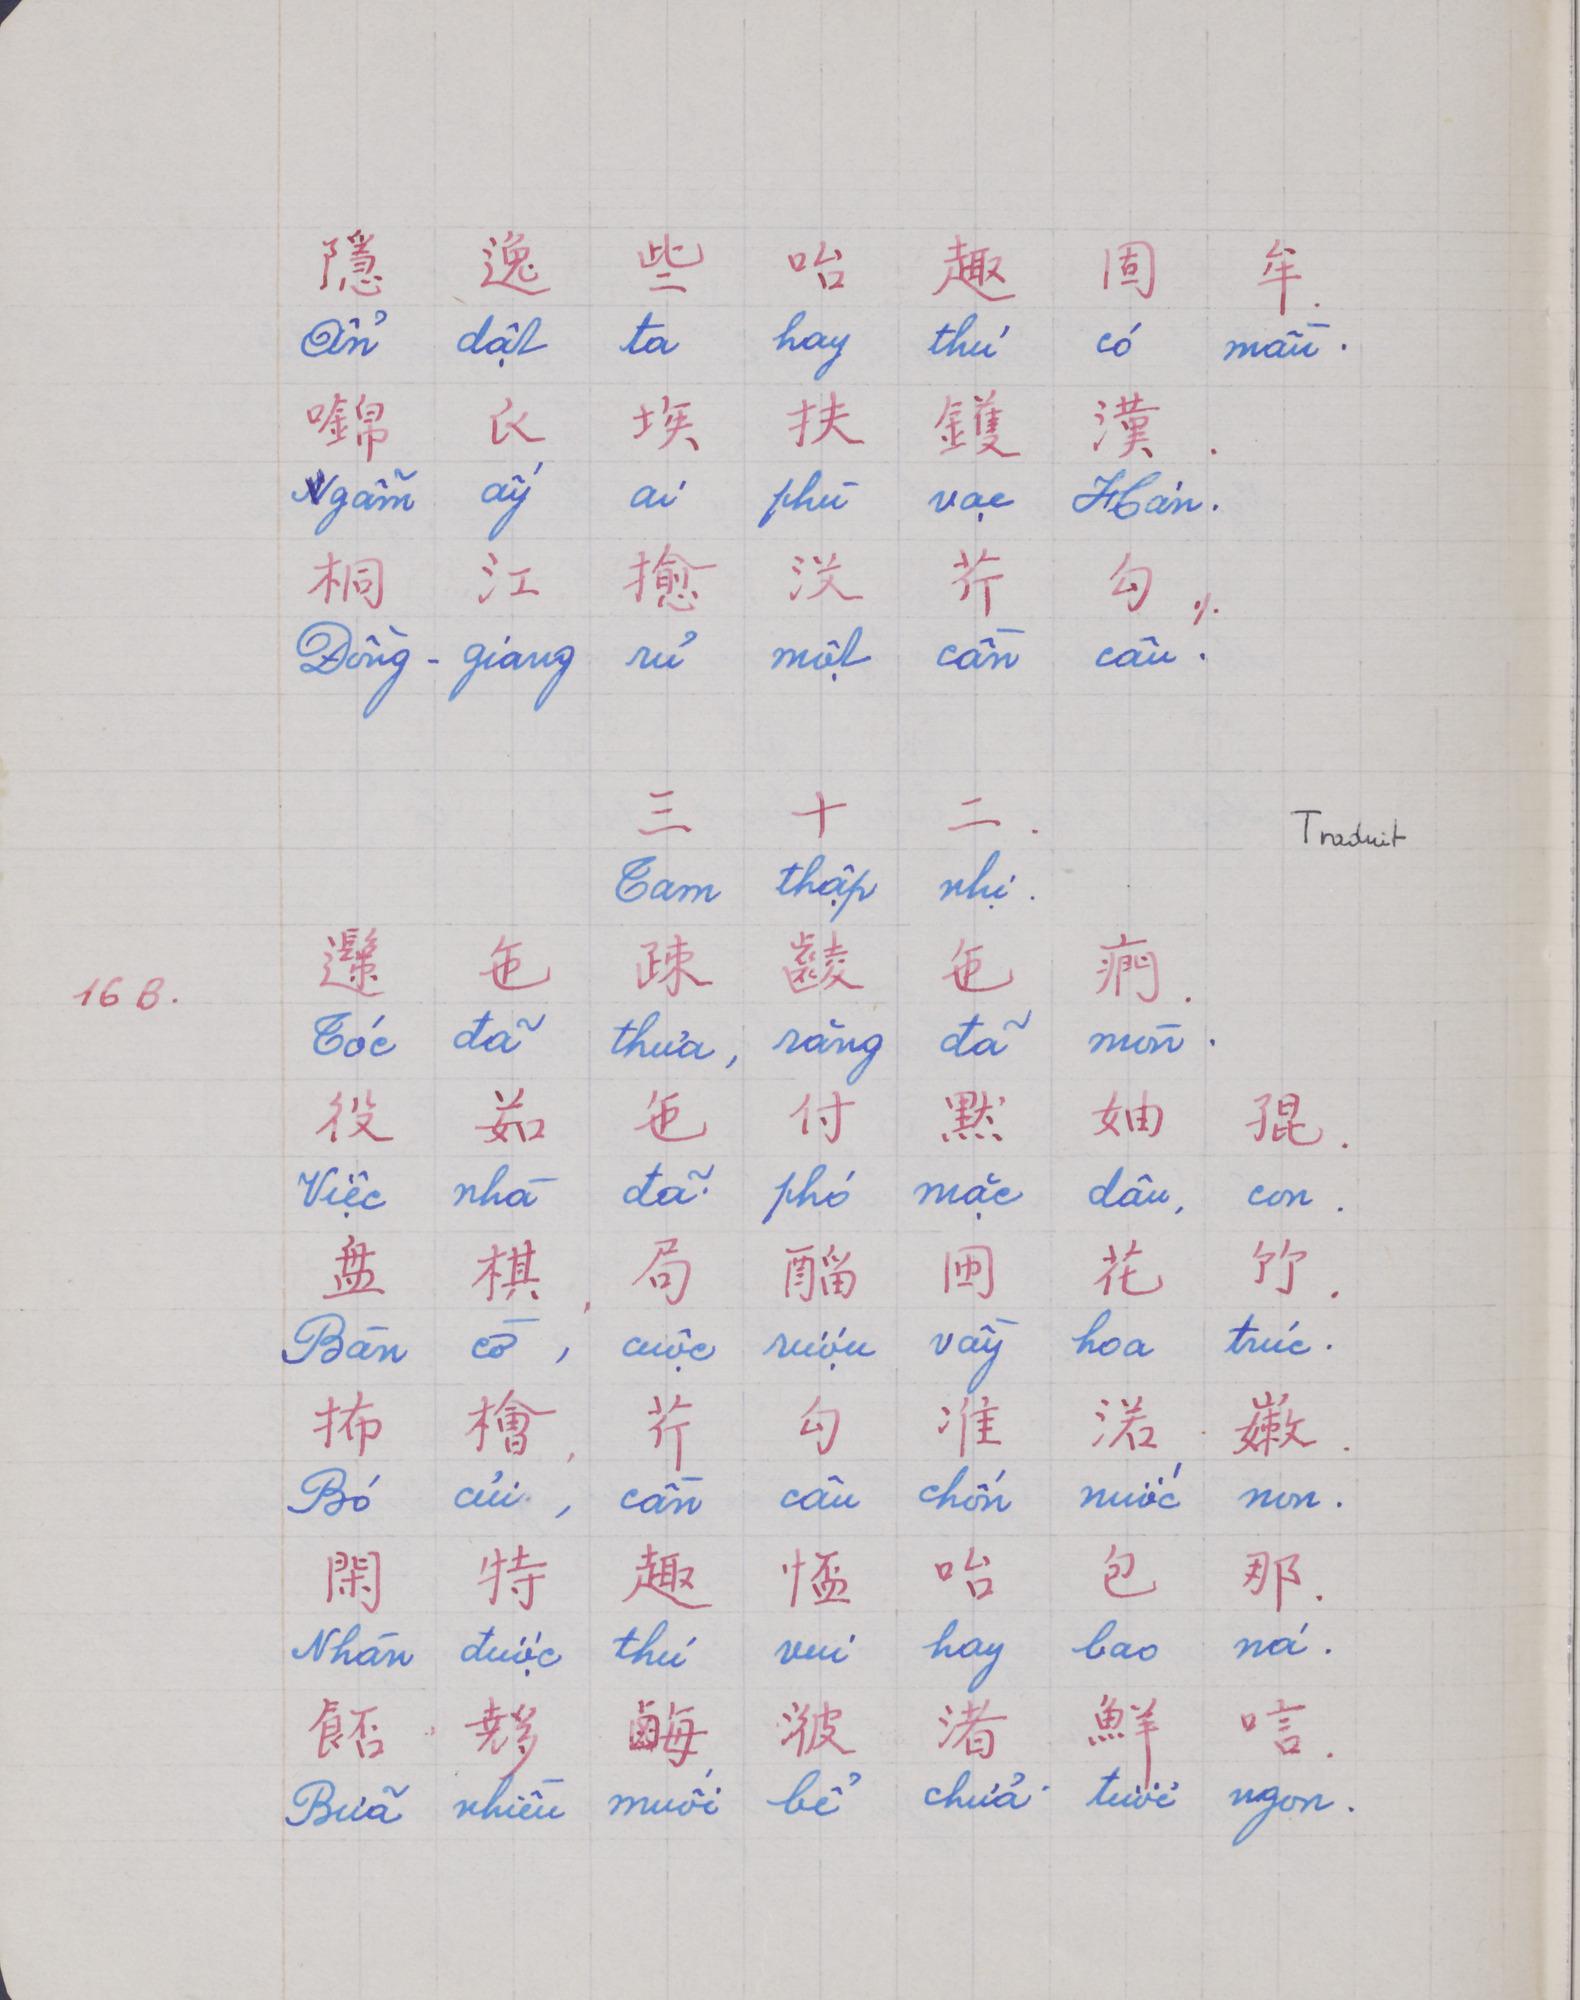 隱 逸 些 咍 趣 固 牟.
Ẩn dật ta hay thú có mầu.
衣 埃 扶 鑊 漢.
Ngẫm ấy ai phù vạc Hán.
桐 江 㨢 沒 芥 勾 ./.
Đồng-giang rủ một cần câu.
三 十 二.
Traduit
Tam thập nhị.
㐌 疎 㐌 .
16 B.
Tóc đã thưa, răng đã mòn.
役 茹 㐌 付 默 妯 混.
Việc nhà đã phó mặc dâu, con.
盘 棋, 局 𨢇 𡇸 花 竹.
Bàn cờ, cuộc rượu vầy hoa trúc.
抪 檜, 芥 勾 准 渃 嫩.
Bó củi, cần câu chốn nước non.
閑 特 趣 𢝙 咍 包 那.
Nhàn được thú vui hay bao ná.
𩛷 𡗉 𪉥 㴜 渚 鮮 唁.
Bữa nhiều muối bể chứa tươi ngon.